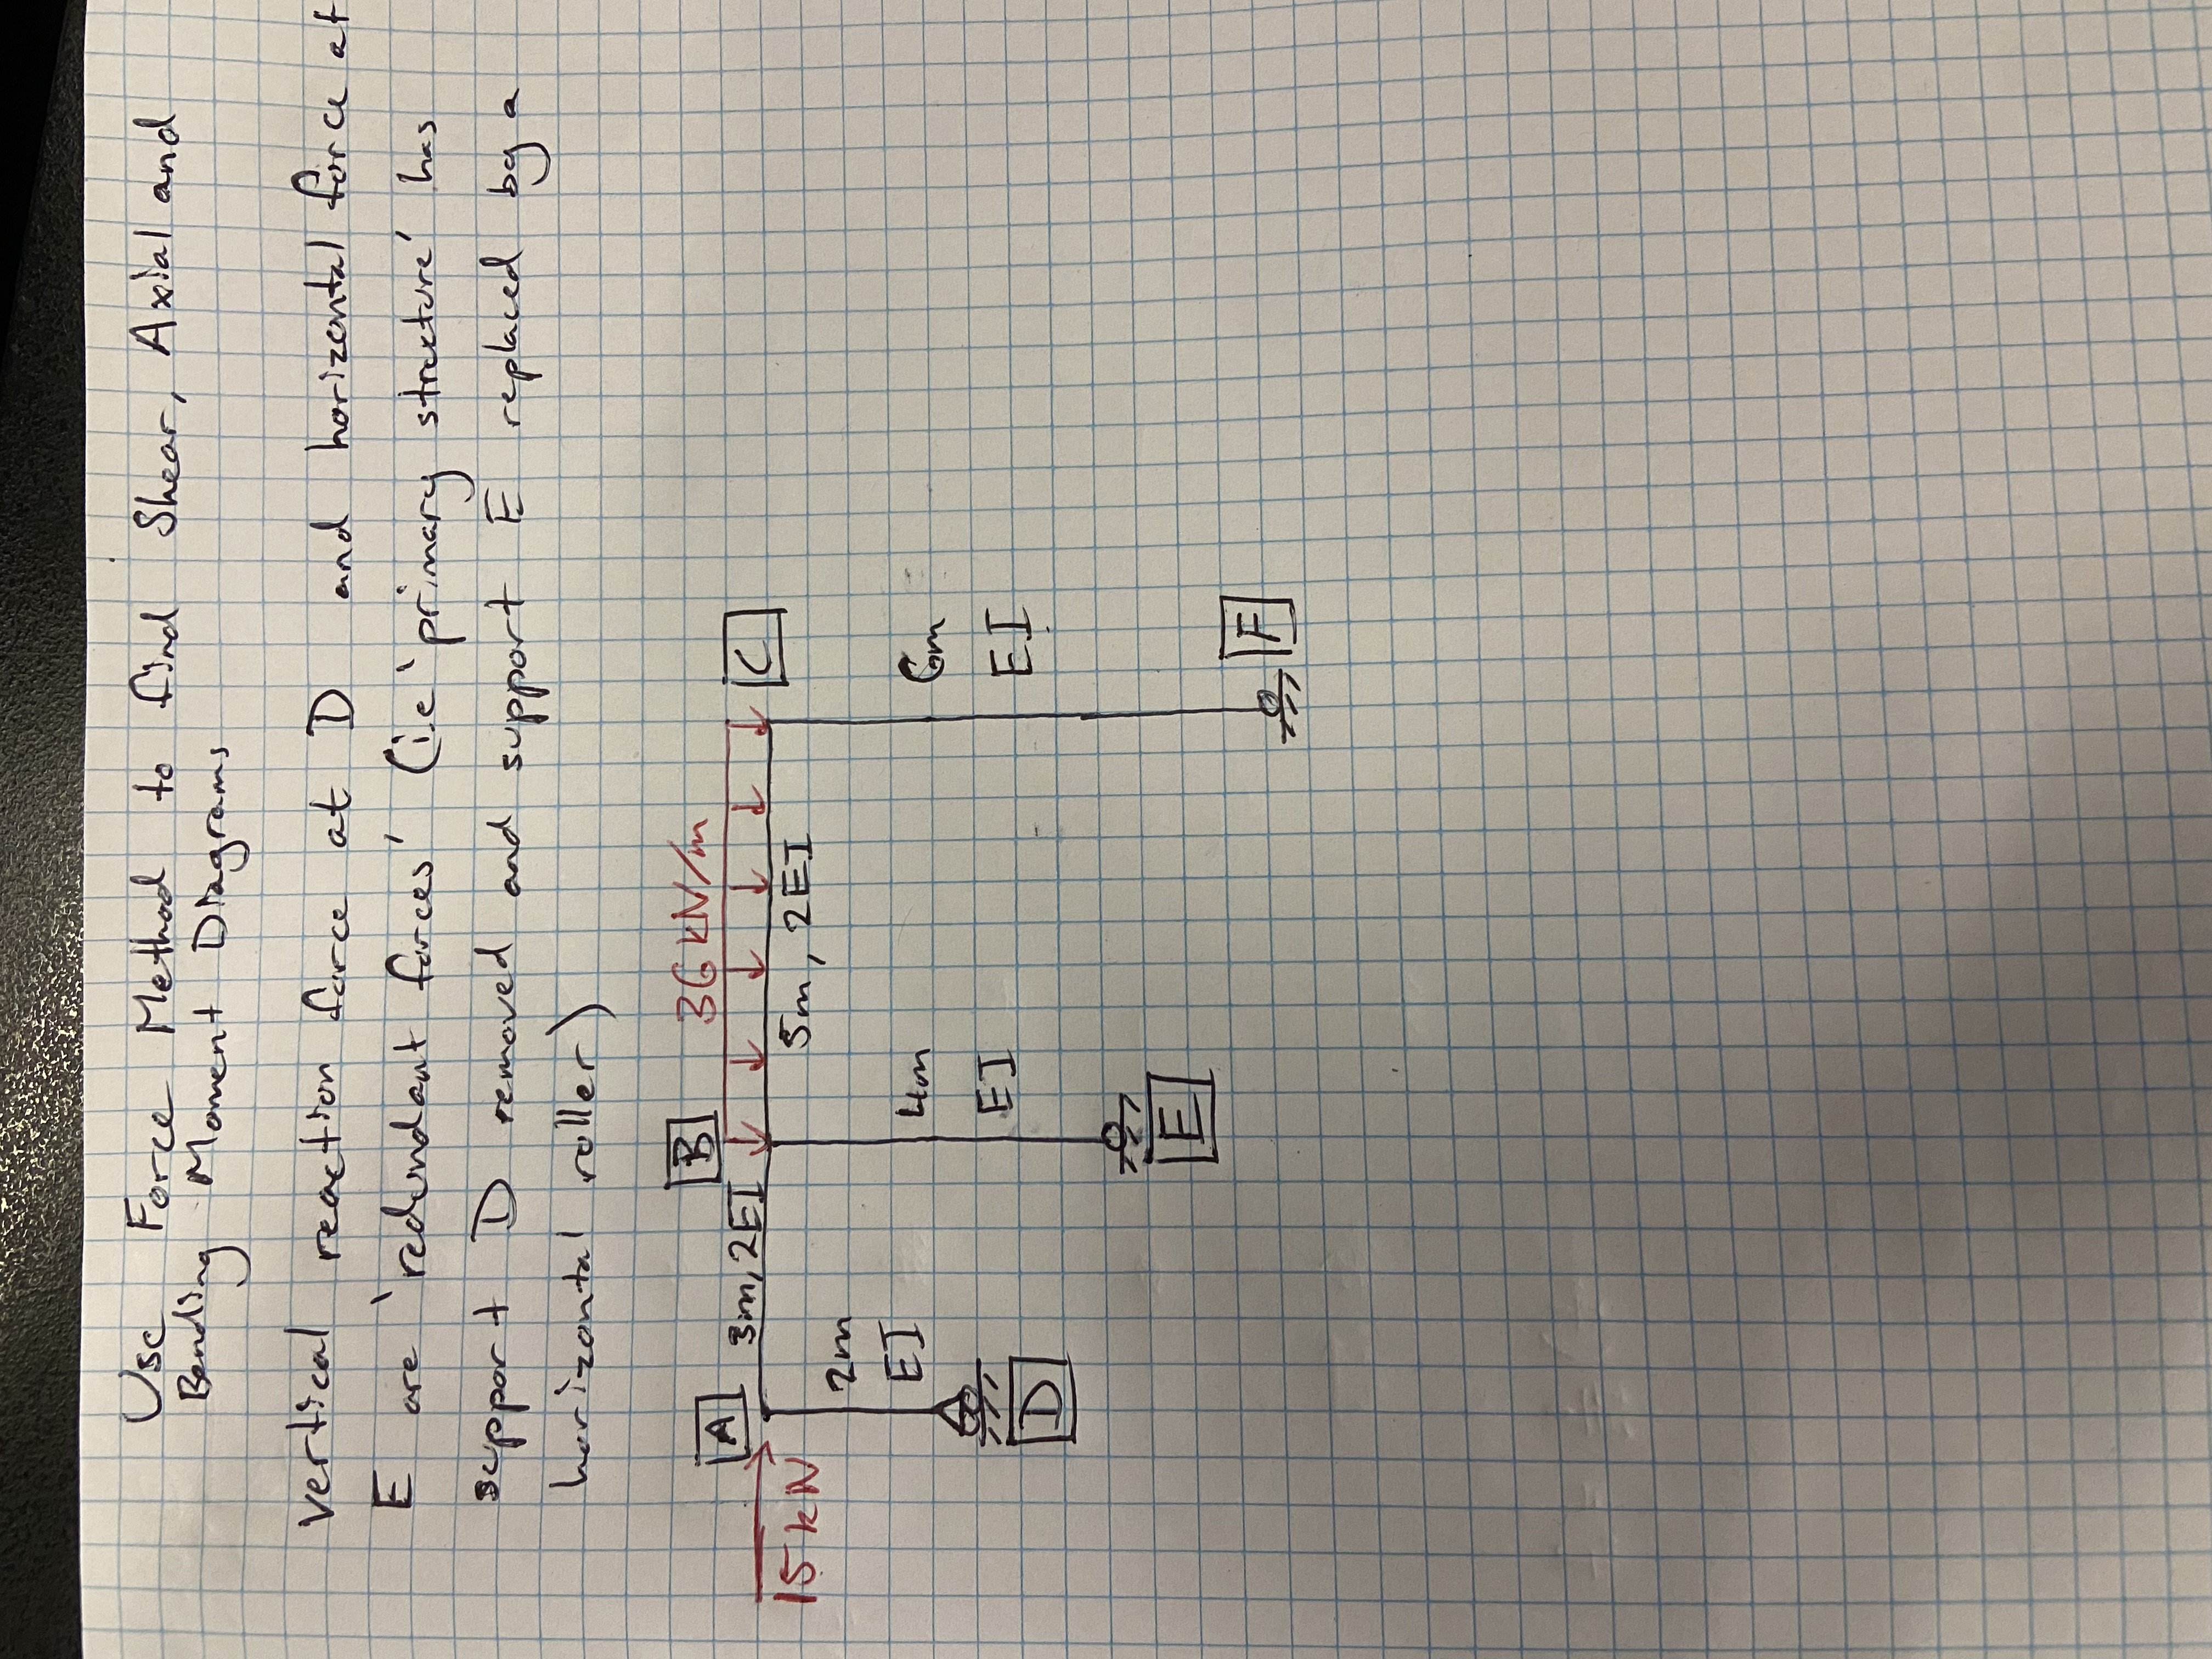 Use Force Method to find Shear, Axial and
Bending Moment Diagrams
vertical reaction force at D and horizontal force at
E are 'redundant forces' (i.e 'primary structure' has
support D removed and support E replaced by a
horizontal roller)
36 kN/m
15 kN
A
3m, 2EI
B
5m, 2EI
C
2m
EI
4m
EI
6m
EI
D
E
F